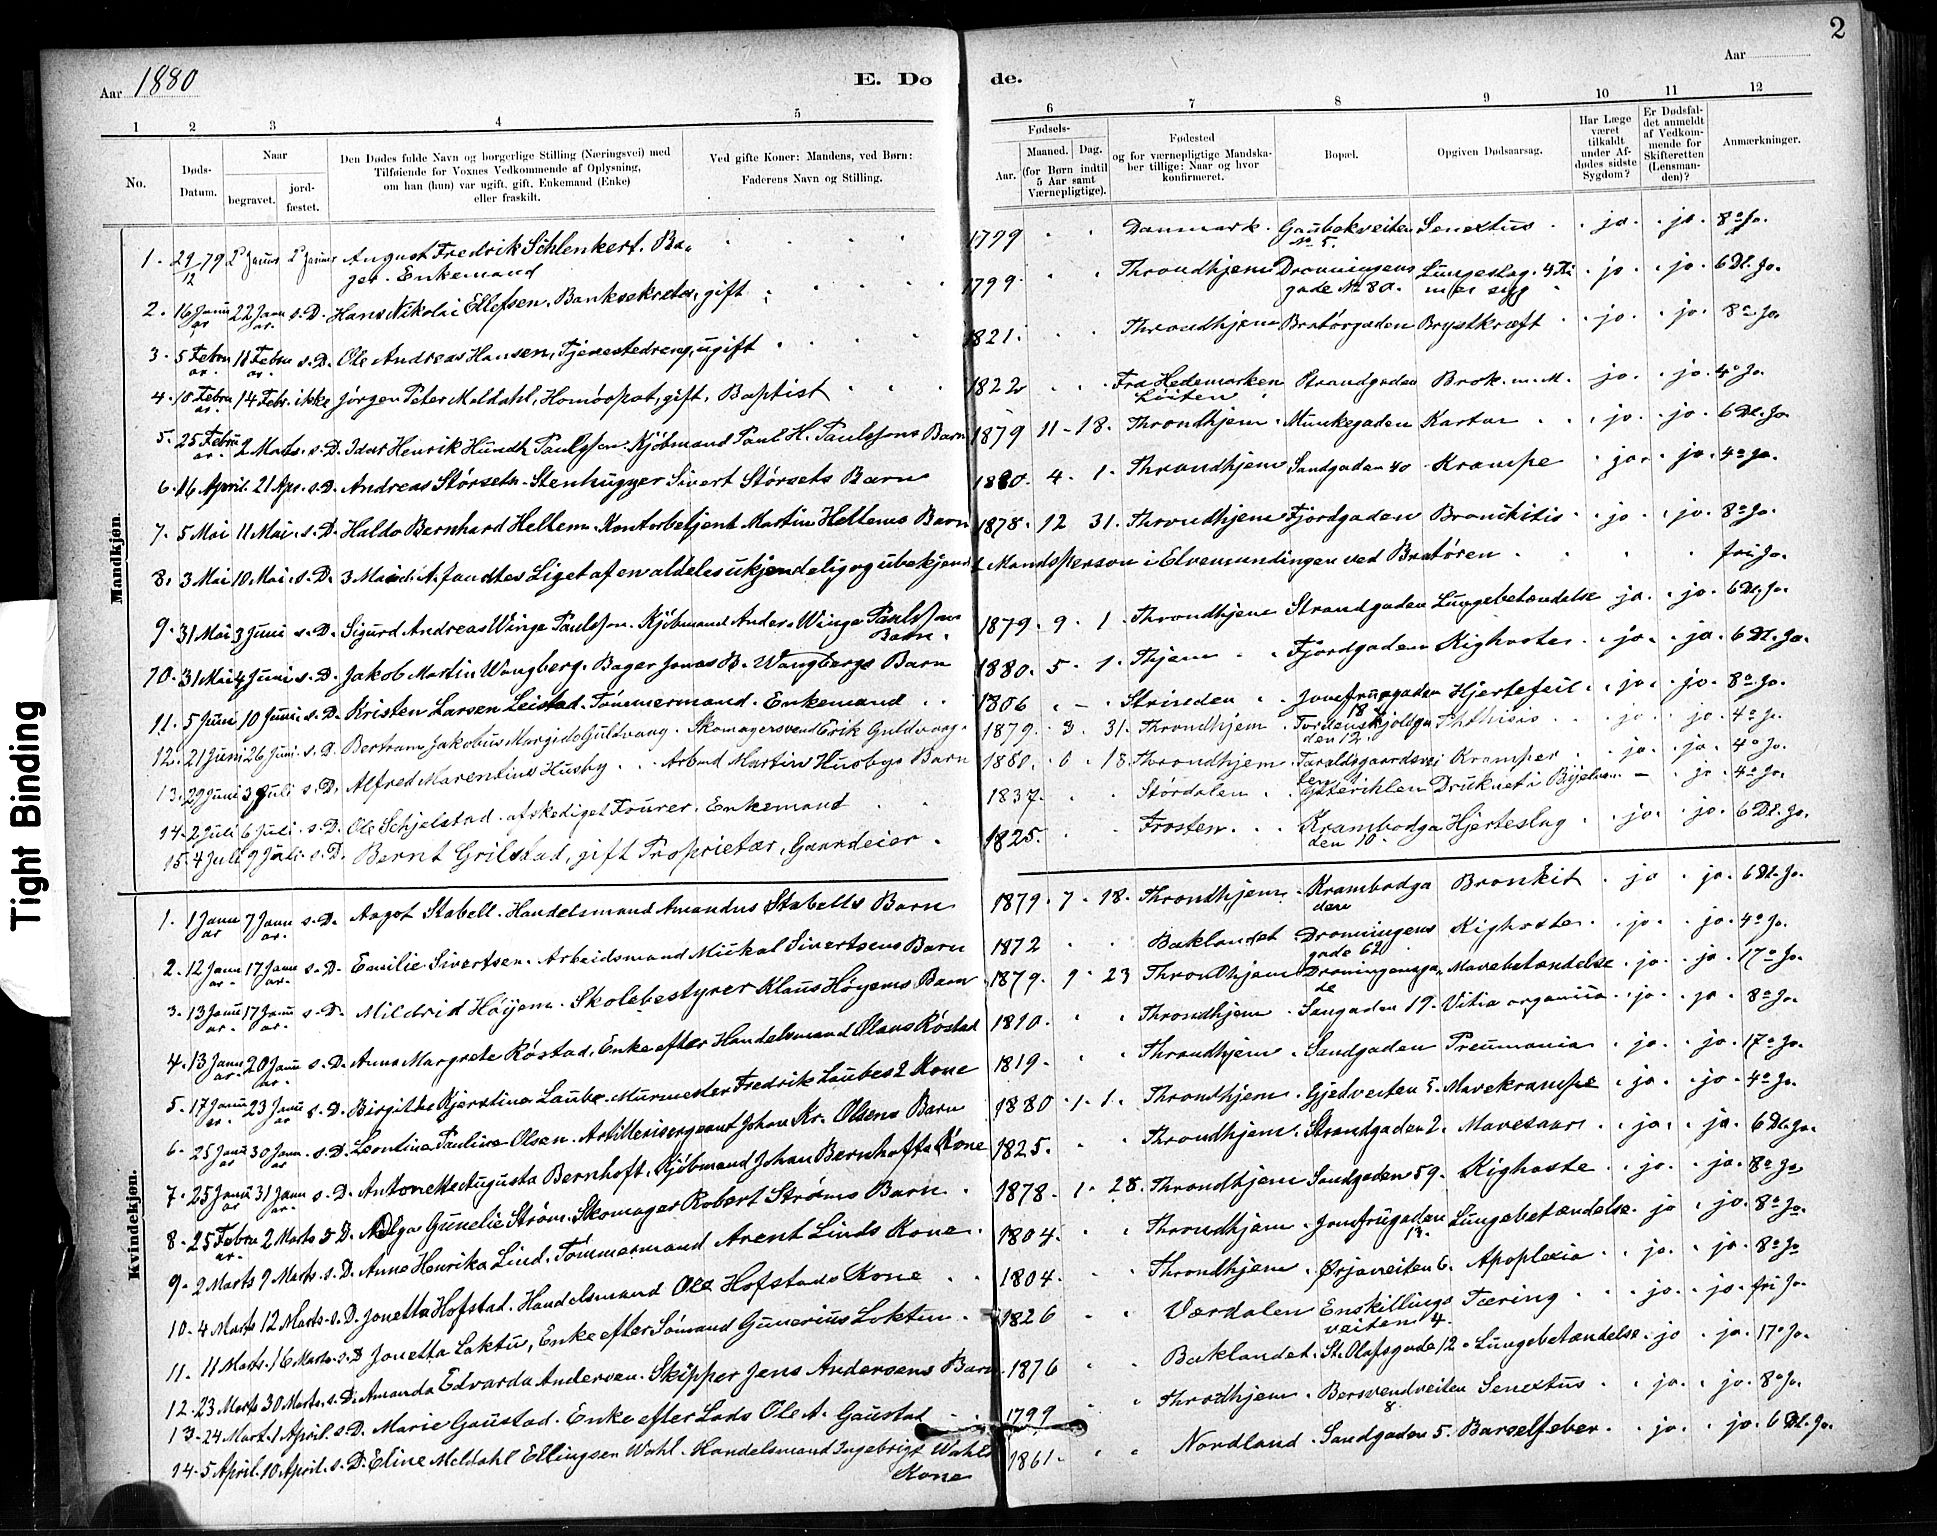 2
Aar 1880
E. Dø de.
Aar
1 2 3 4 5 6 7 8 9 10 11 12
No.
Døds-Datum.
Naar
begravet.
jord-fæstet.
Den Dødes fulde Navn og borgerlige Stilling (Næringsvei) med
Tilføiende for Voxnes Vedkommende af Oplysning,
om han (hun) var ugift, gift, Enkemand (Enke)
eller fraskilt.
Ved gifte Koner: Mandens, ved Børn:
Faderens Navn og Stilling.
Fødsels-
Aar.
Maaned. Dag.
(for Børn indtil
5 Aar samt
Værnepligtige).
Fødested
og for værnepligtige Mandska-
ber tillige: Naar og hvor
konfirmeret.
Bopæl.
Opgiven Dødsaarsag.
Har Læge
været
tilkaldt
under Af-
dødes sidste
Sygdom?
Er Dødsfal-
det anmeldt
af Vedkom-
mende for
Skifteretten
(Lensman-
den)?
Anmærkninger.
Mandkjøn.
1. 29/12 79 2' Januar 2' Januar August Fredrik Schlenkert. Ba- 1799 Danmark. Gaubækveiten Senectus ja. ja. 8º Jo.
ger. Enkemand No 5.
2. 16 Januar 22 Januar s.D. Hans Nikolai Ellefsen. Banksekretær, gift 1799. Throndhjem Dronningens Lungeslag. ja. ja. 6 Dl. Jo.
gade No 80.
3. 5 Februar 11 Februar s.D. Ole Andreas Hansen, Tjenestedreng, ugift 1821. Throndhjem Bratørgaden Brystkræft ja. ja. 8º Jo.
4. 10 Februar 14 Febr. ikke Jørgen Peter Meldahl, Homöopat, gift, Baptist 1822 Fra Hedemarken Strandgaden Brok. ja. ja. 4º Jo.
Löiten
5. 25 Februar 2 Marts. s.D. Idar Henrik Hundt Paulssen. Kjøbmand Paul H. Paulssens Barn 1879 11 18. Throndhjem. Munkegaden Kartar ja. ja. 6 Dl. Jo.
6. 16 April. 21 Apr. s.D. Andreas Størseth. Stenhugger Sivert Størseths Barn 1880. 4. 1. Throndhjem Sandgaden 40 Krampe ja. ja. 4º Jo.
7. 5 Mai 11 Mai. s.D. Haldo Bernhard Hellem. Kontorbetjent Martin Hellems Barn 1878. 12 31. Throndhjem Fjordgaden Bronchitis ja. ja. 8º Jo.
8. 3 Mai 10 Mai. s.D. 3 Maid. A. fandtes Liget af en aldeles ukjendelig og ubekjendt Mandsperson i Elvemundingen ved Bratøren fri Jo.
9. 31 Mai 3 Juni s.D. Sigurd Andreas Winge Paulssen. Kjøbmand Anders Winge Paulssens Barn. 1879. 9. 1. Throndhjem Strandgaden Lungebetændelse ja. ja. 6 Dl. Jo.
10. 31 Mai 4 Juni s.D. Jakob Martin Wangberg. Bager Jonas B. Wangbergs Barn 1880. 5. 1. Thjem Fjordgaden Kighoste. ja. ja. 6 Dl. Jo.
11. 5 Juni 10 Juni s.D. Kristen Larsen Leistad. Tømmermand. Enkemand 1806 Strinden Jomfrugaden Hjertefeil ja. ja. 8º Jo.
12. 21 Juni 26 Juni. s.D. Bertram Jakobus Margido Guldvang. Skomagersvend Erik Guldvang. 1879. 3 31. Throndhjem Tordenskjoldga Phthisis ja. ja. 4º Jo.
den 12.
13. 29 Juni 3 Juli s.D. Alfred Marentius Husby. Arbmd Martin Husbys Barn 1880. 6. 18. Throndhjem Kramper ja. ja. 4º Jo.
14. 2 Juli 6 Juli s.D. Ole Schjelstad. afskediget Fourer. Enkemand 1837. Størdalen Ytterihlen Druknet i ja. 4º Jo.
15. 4 Juli 9 Juli s.D. Bernt Grilstad, gift Proprietær, Gaardeier 1825. Frosten. Krambodga Hjerteslag ja. ja. 6 Dl. Jo.
den 10.
Kvindekjøn.
1. 1 Januar 7 Januar s.D. Aagot Stabell. Handelsmand Amandus Stabells Barn 1879. 7. 18. Throndhjem. Krambodga Bronkit ja ja. 6 Dl. Jo.
den
2. 12 Januar 17 Januar s.D. Emilie Sivertsen. Arbeidsmand Mickal Sivertsens Barn 1872 Baklandet Dronningens Kighoste ja. ja. 4º Jo.
gade 62
3. 13 Januar 17 Januar s.D. Mildrid Høyem. Skolebestyrer Klaus Høyems Barn 1879. 9. 23 Throndhjem Dronningensga Mavebetændelse ja. ja. 17º Jo.
de
4. 13 Januar 20 Januar s.D. Anne Margrete Røstad. Enke efter Handelsmand Olaus Røstad 1810. Throndhjem. Sangaden 19. Vitia organica ja. ja. 8º Jo.
5. 17 Januar 23 Januar s.D. Birgithe Kjerstina Laube. Murmester Fredrik Laubes 2 Kone 1819. Throndhjem. Sandgaden Pneumonia ja. ja. 17º Jo.
6. 25 Januar 30 Januar s.D. Leontine Pauline Olsen. Artillerisergeant Johan Kr. Olsens Barn 1880. 1. 1. Throndhjem. Gjedveiten 5. Mavekrampe ja. ja. 4º Jo.
7. 25 Januar 31 Januar s.D. Antonette Augusta Bernhoft. Kjøbmand Johan Bernhofts Kone 1825. Throndhjem. Strandgaden 2. Mavesaar ja. ja. 6 Dl. Jo.
8. 25 Februar 2 Marts s.D. Helga Gunelie Strøm. Skomager Robert Strøms Barn 1878. 1. 28. Throndhjem Sandgaden 59. Kighoste ja. ja. 8º Jo
9. 2 Marts 9 Marts. s.D. Anne Henrika Lind. Tømmermand Arent Linds Kone. 1804. Throndhjem. Jomfrugaden Lungebetændelse. ja ja. 8º Jo.
13.
10. 4 Marts 12 Marts. s.D. Jonetta Hofstad. Handelsmand Ole Hofstads Kone 1804. Throndhjem. Ørjaveiten 6. Apoplexia ja. ja. 8º Jo
11. 11 Marts. 16 Marts. s.D Jonetta Loktu, Enke efter Sømand Gunerius Loktu. 1826 Værdalen Enskillings Tæring ja. ja. fri Jo.
veiten 4.
12. 23 Marts 30 Marts. s.D. Amanda Edvarda Andersen. Skipper Jens Andersens Barn 1876 Baklandet. St. Olafsgade 12. Lungebetændelse. ja ja. 17º Jo.
13. 24 Mart. 1 April. s.D. Marie Gaustad. Enke efter Lods Ole A. Gaustad 1799 Throdhjem. Bersvendveiten Senectus ja. ja. 8º Jo.
8
14. 5 April. 10 April. s.D. Eline Meldahl Ellingsen Wahl. Handelsmand Ingebrigt Wahls 1861. Nordland Sandgaden 5. Barselfeber. ja. ja. 6 Dl. Jo.
Kone
Tight Binding